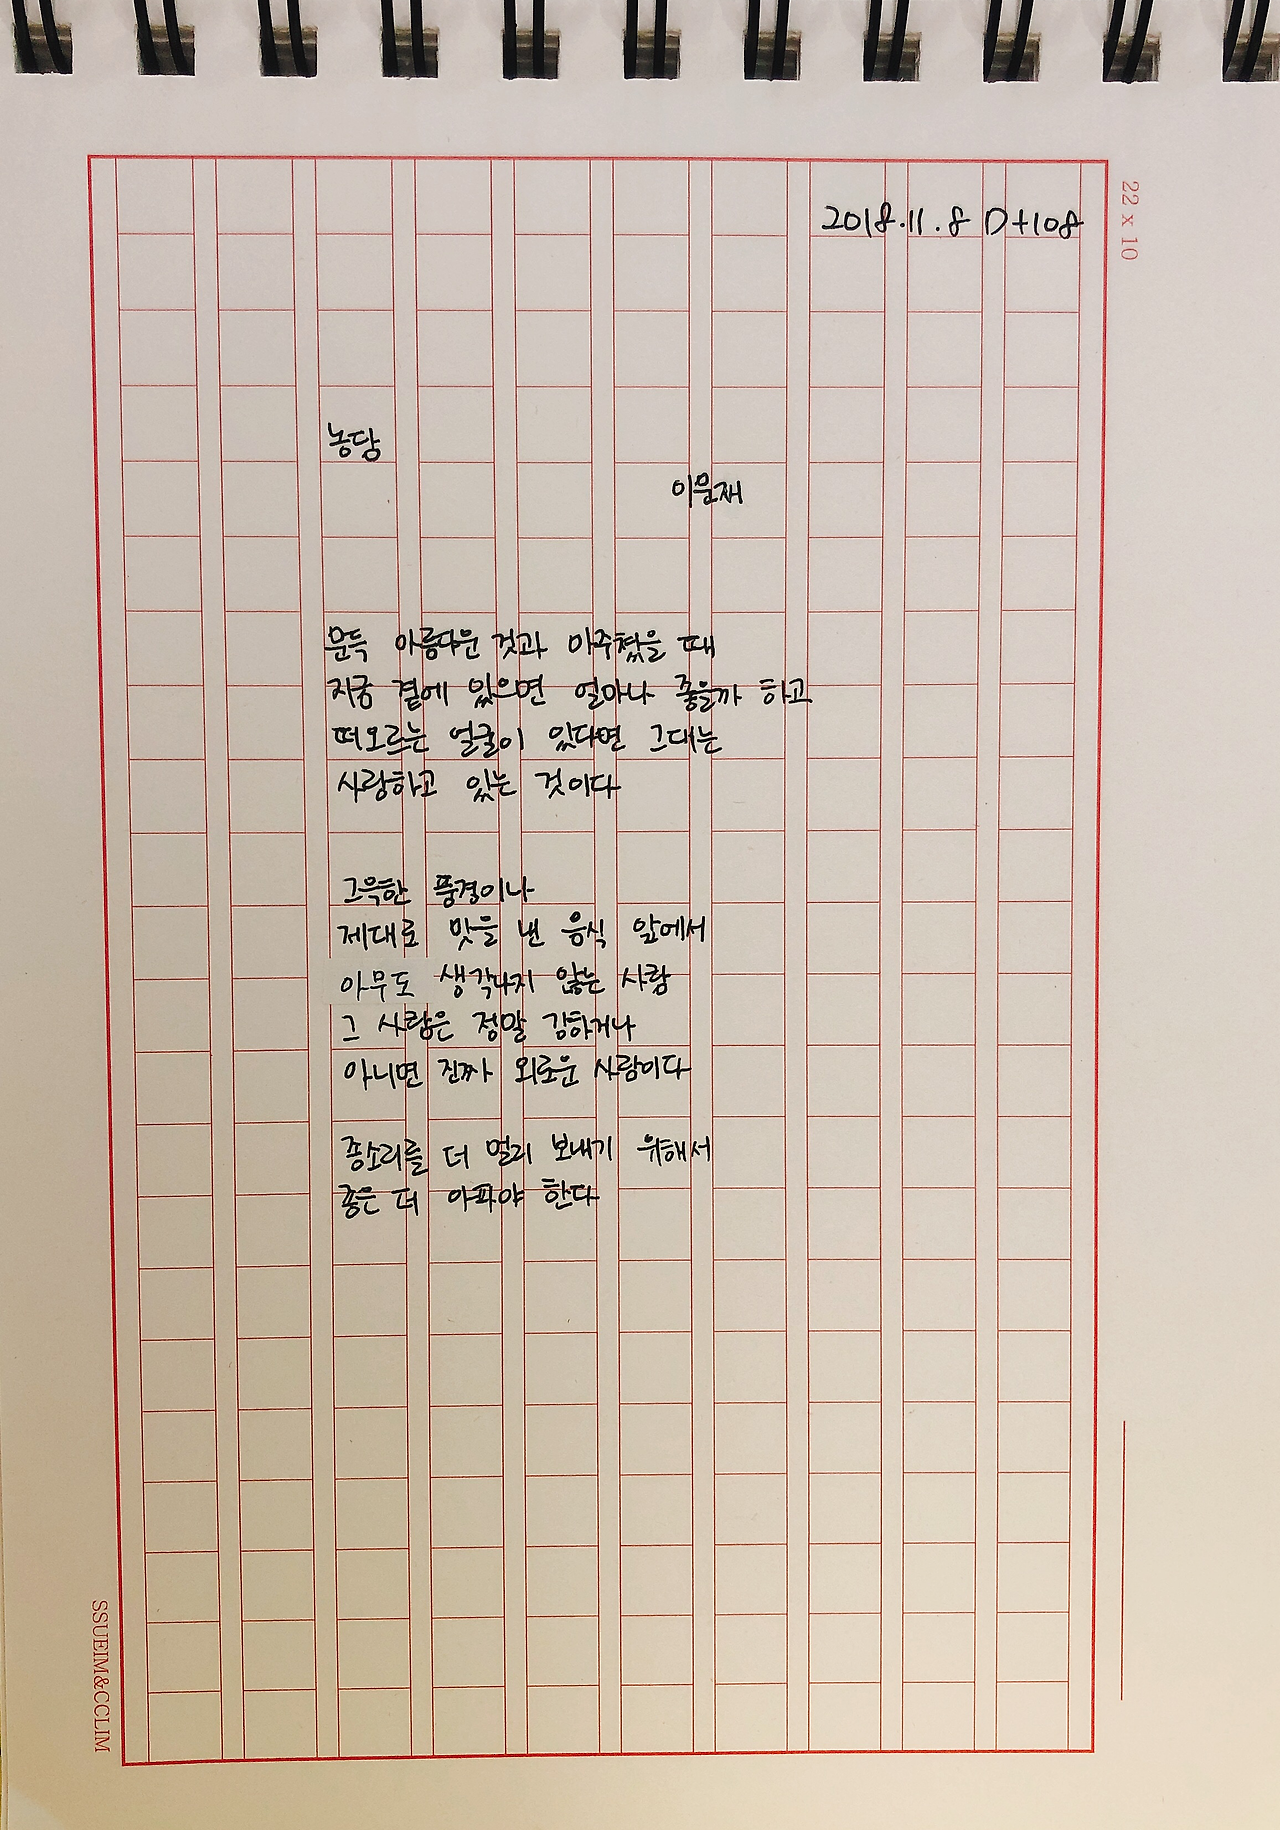 22 x 10
2018.11.8 D+108
농담
이문재
문득 아름다운 것과 마주쳤을 때
지금 곁에 있으면 얼마나 좋을까 하고
떠오르는 얼굴이 있다면 그대는
사랑하고 있는 것이다
그윽한 풍경이나
제대로 맛을 낸 음식 앞에서
아무도 생각나지 않는 사람
그 사람은 정말 강하거나
아니면 진짜 외로운 사람이다
종소리를 더 멀리 보내기 위해서
종은 더 아파야 한다
SSUEIM&CCLIM